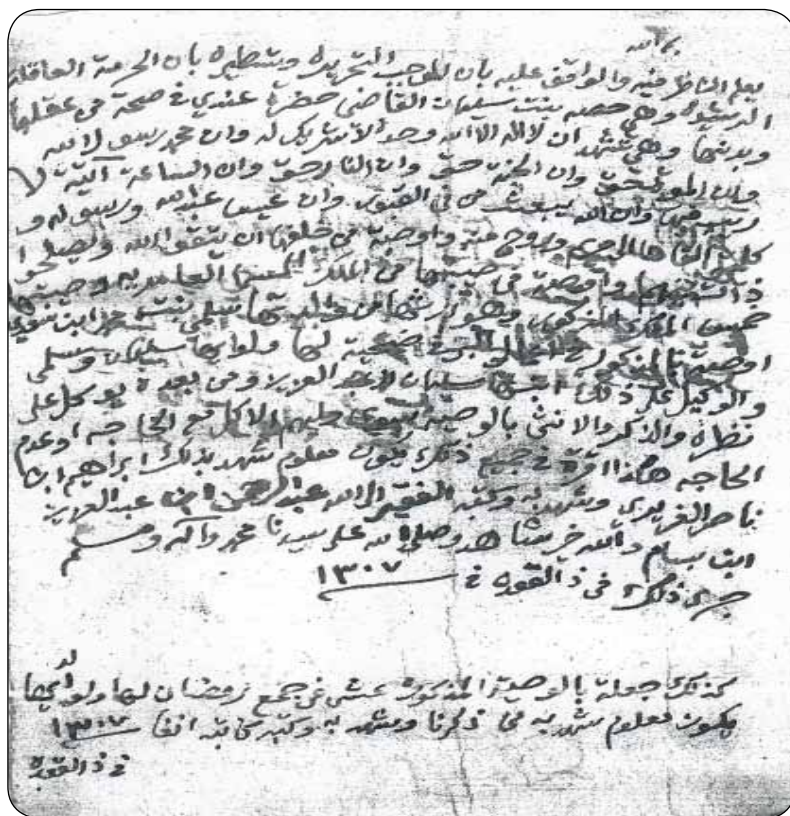 بسم الله
يعلم الناظر فيه والواقف عليه بان الموجب لتحريره وتسطيره بان الحرمة العاقلة
الرشيدة وهي حصه بنت سليمان القاضي حضرة عندي في صحة من عقلها
وبدنها وهي تشهد ان لا اله الا الله وحده لا شريك له وان محمد رسول الله
وان الموت حق وان الجنة حق وان النار حق وان الساعة آتية لا
ريب فيها وان الله يبعث من في القبور وان عيسى عبدالله ورسوله و
كلمته القاها الى مريم وروح منه واوصة من خلفها ان يتقو الله ويصلحوا
ذات بينهم واوصة في من الملك
خمس المذكور وهو ورثها من سلمى بنت محمد ابن
اوصة المذكور ضحية لها ولوالديها سليمان وسلمى
والوكيل على ذلك ابنها سليمان العبد العزيز ومن بعده يوكل على
نظاره والذكر والانثى بالوصية عليهم الاكل مع الحاجه او عدم
الحاجه هكذا اقرة في جميع ذلك يكون معلوم شهد بذلك ابراهيم ابن
ناصر الفريدي وشهد به وكتبه الفقير الى الله عبدالرحمن ابن عبدالعزيز
ابن بسام والله خير شاهد وصلى الله على سيدنا محمد وآله وسلم
جرى ذلك في ذ القعده في ١٣٠٧
كذلك جعلة بالوصية المذكورة عشى في جمع رمضان لها ولوالديها
يكون معلوم شهد به من ذكرنا وشهد به وكتبه كاتبه انفا ١٣٠٧
في ذ القعده